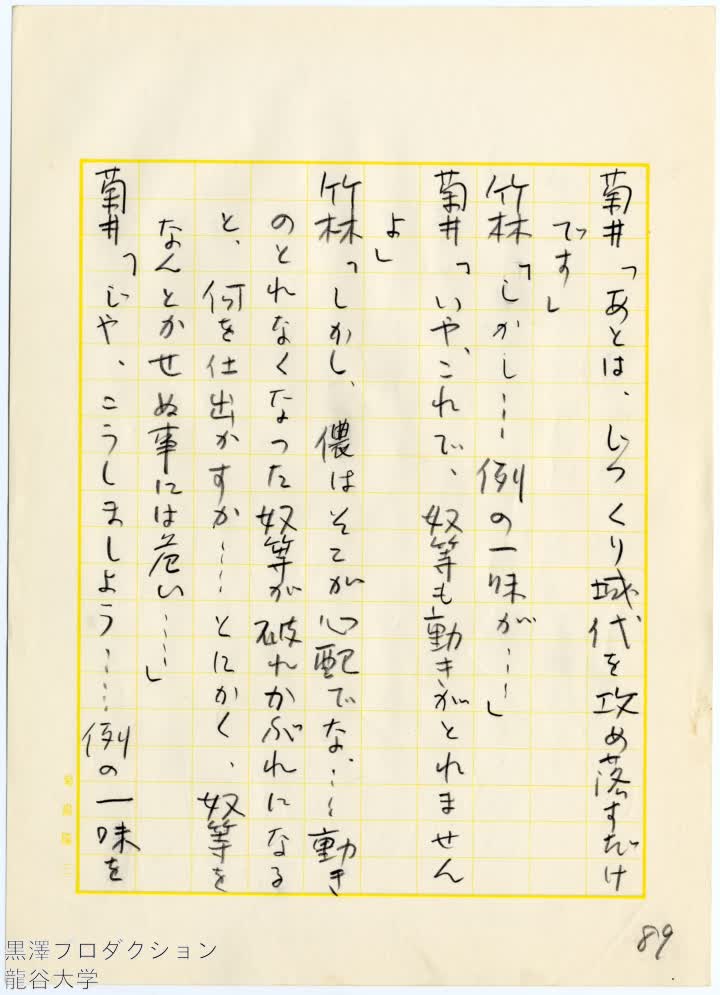 菊井「あとは、じっくり城代を攻め落すだけ
です」
竹林「しかし……例の一味が……」
菊井「いや、これで、奴等も動きがとれません
よ」
竹林「しかし、儂はそこが心配でな、……動き
のとれなくなった奴等が破れかぶれになる
と、何を仕出かすか……とにかく、奴等を
なんとかせぬ事には危い……」
菊井「じゃ、こうしましょう……例の一味を
89
黒澤プロダクション
龍谷大学